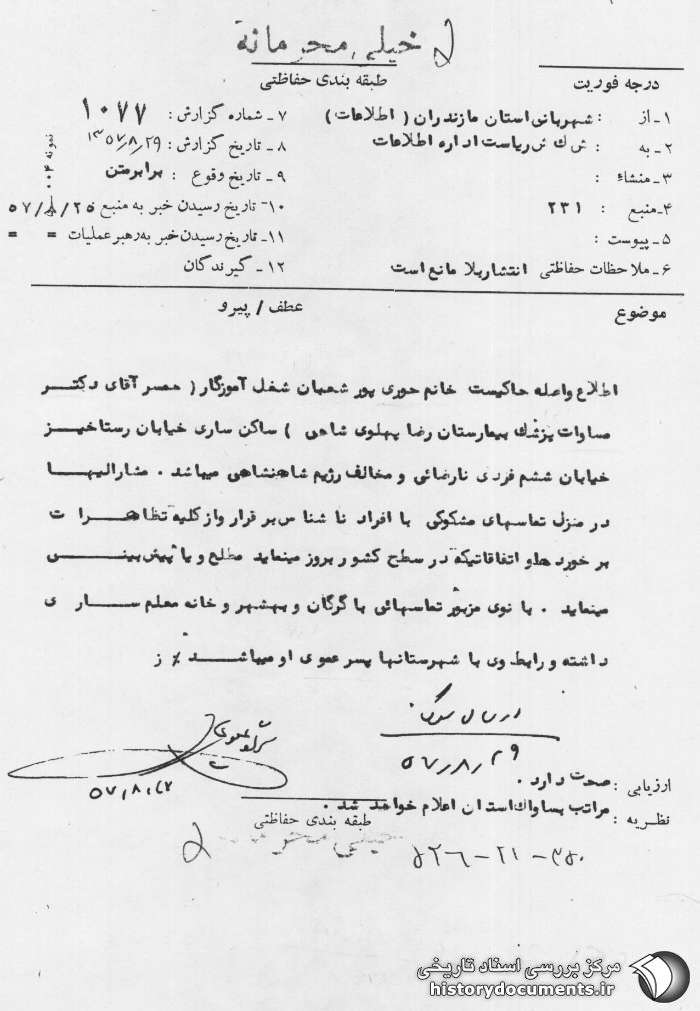 خیلی محرمانه
طبقه بندی حفاظتی
درجه فوریت
۱ـ از : شهربانی استان مازندران ( اطلاعات )
۲ـ به : ش ك ش ریاست اداره اطلاعات
۳ـ منشاء :
۴ـ منبع : ۲۳۱
۵ـ پیوست :
۶ـ ملاحظات حفاظتی انتشار بلا مانع است
۷ـ شماره گزارش : ۱۰۷۷
۸ـ تاریخ گزارش : ۱۳۵۷/۸/۲۹
۹ـ تاریخ وقوع : برابر متن
۱۰ـ تاریخ رسیدن خبر به منبع ۵۷/۸/۲۵
۱۱ـ تاریخ رسیدن خبر به رهبر عملیات = =
۱۲ـ گیرندگان
نمونه ۰۰۴
موضوع
عطف / پیرو
اطلاع واصله حاکیست خانم حوری پور شعبان شغل آموزگار ( همسر آقای دکتر
مساوات پزشك بیمارستان رضا پهلوی شاهی ) ساکن ساری خیابان رستاخیز
خیابان ششم فردی ناراضی و مخالف رژیم شاهنشاهی میباشد . مشارالیها
در منزل تماسهای مشکوکی با افراد ناشناس برقرار و از کلیه تظاهرا ت
برخوردها و اتفاقاتیکه در سطح کشور بروز مینماید مطلع و یا پیش بینی
مینماید . بانوی مزبور تماسهائی با گرگان و بهشهر و خانه معلم سار ی
داشته و رابط وی با شهرستانها پسر عموی او میباشد ٪ ز
۵۷/۸/۲۹
ارزیابی : صحت دارد .
نظریه : مراتب بساواك استان اعلام خواهد شد .
طبقه بندی حفاظتی
خیلی محرمانه
مرکز بررسی اسناد تاریخی
historydocuments.ir